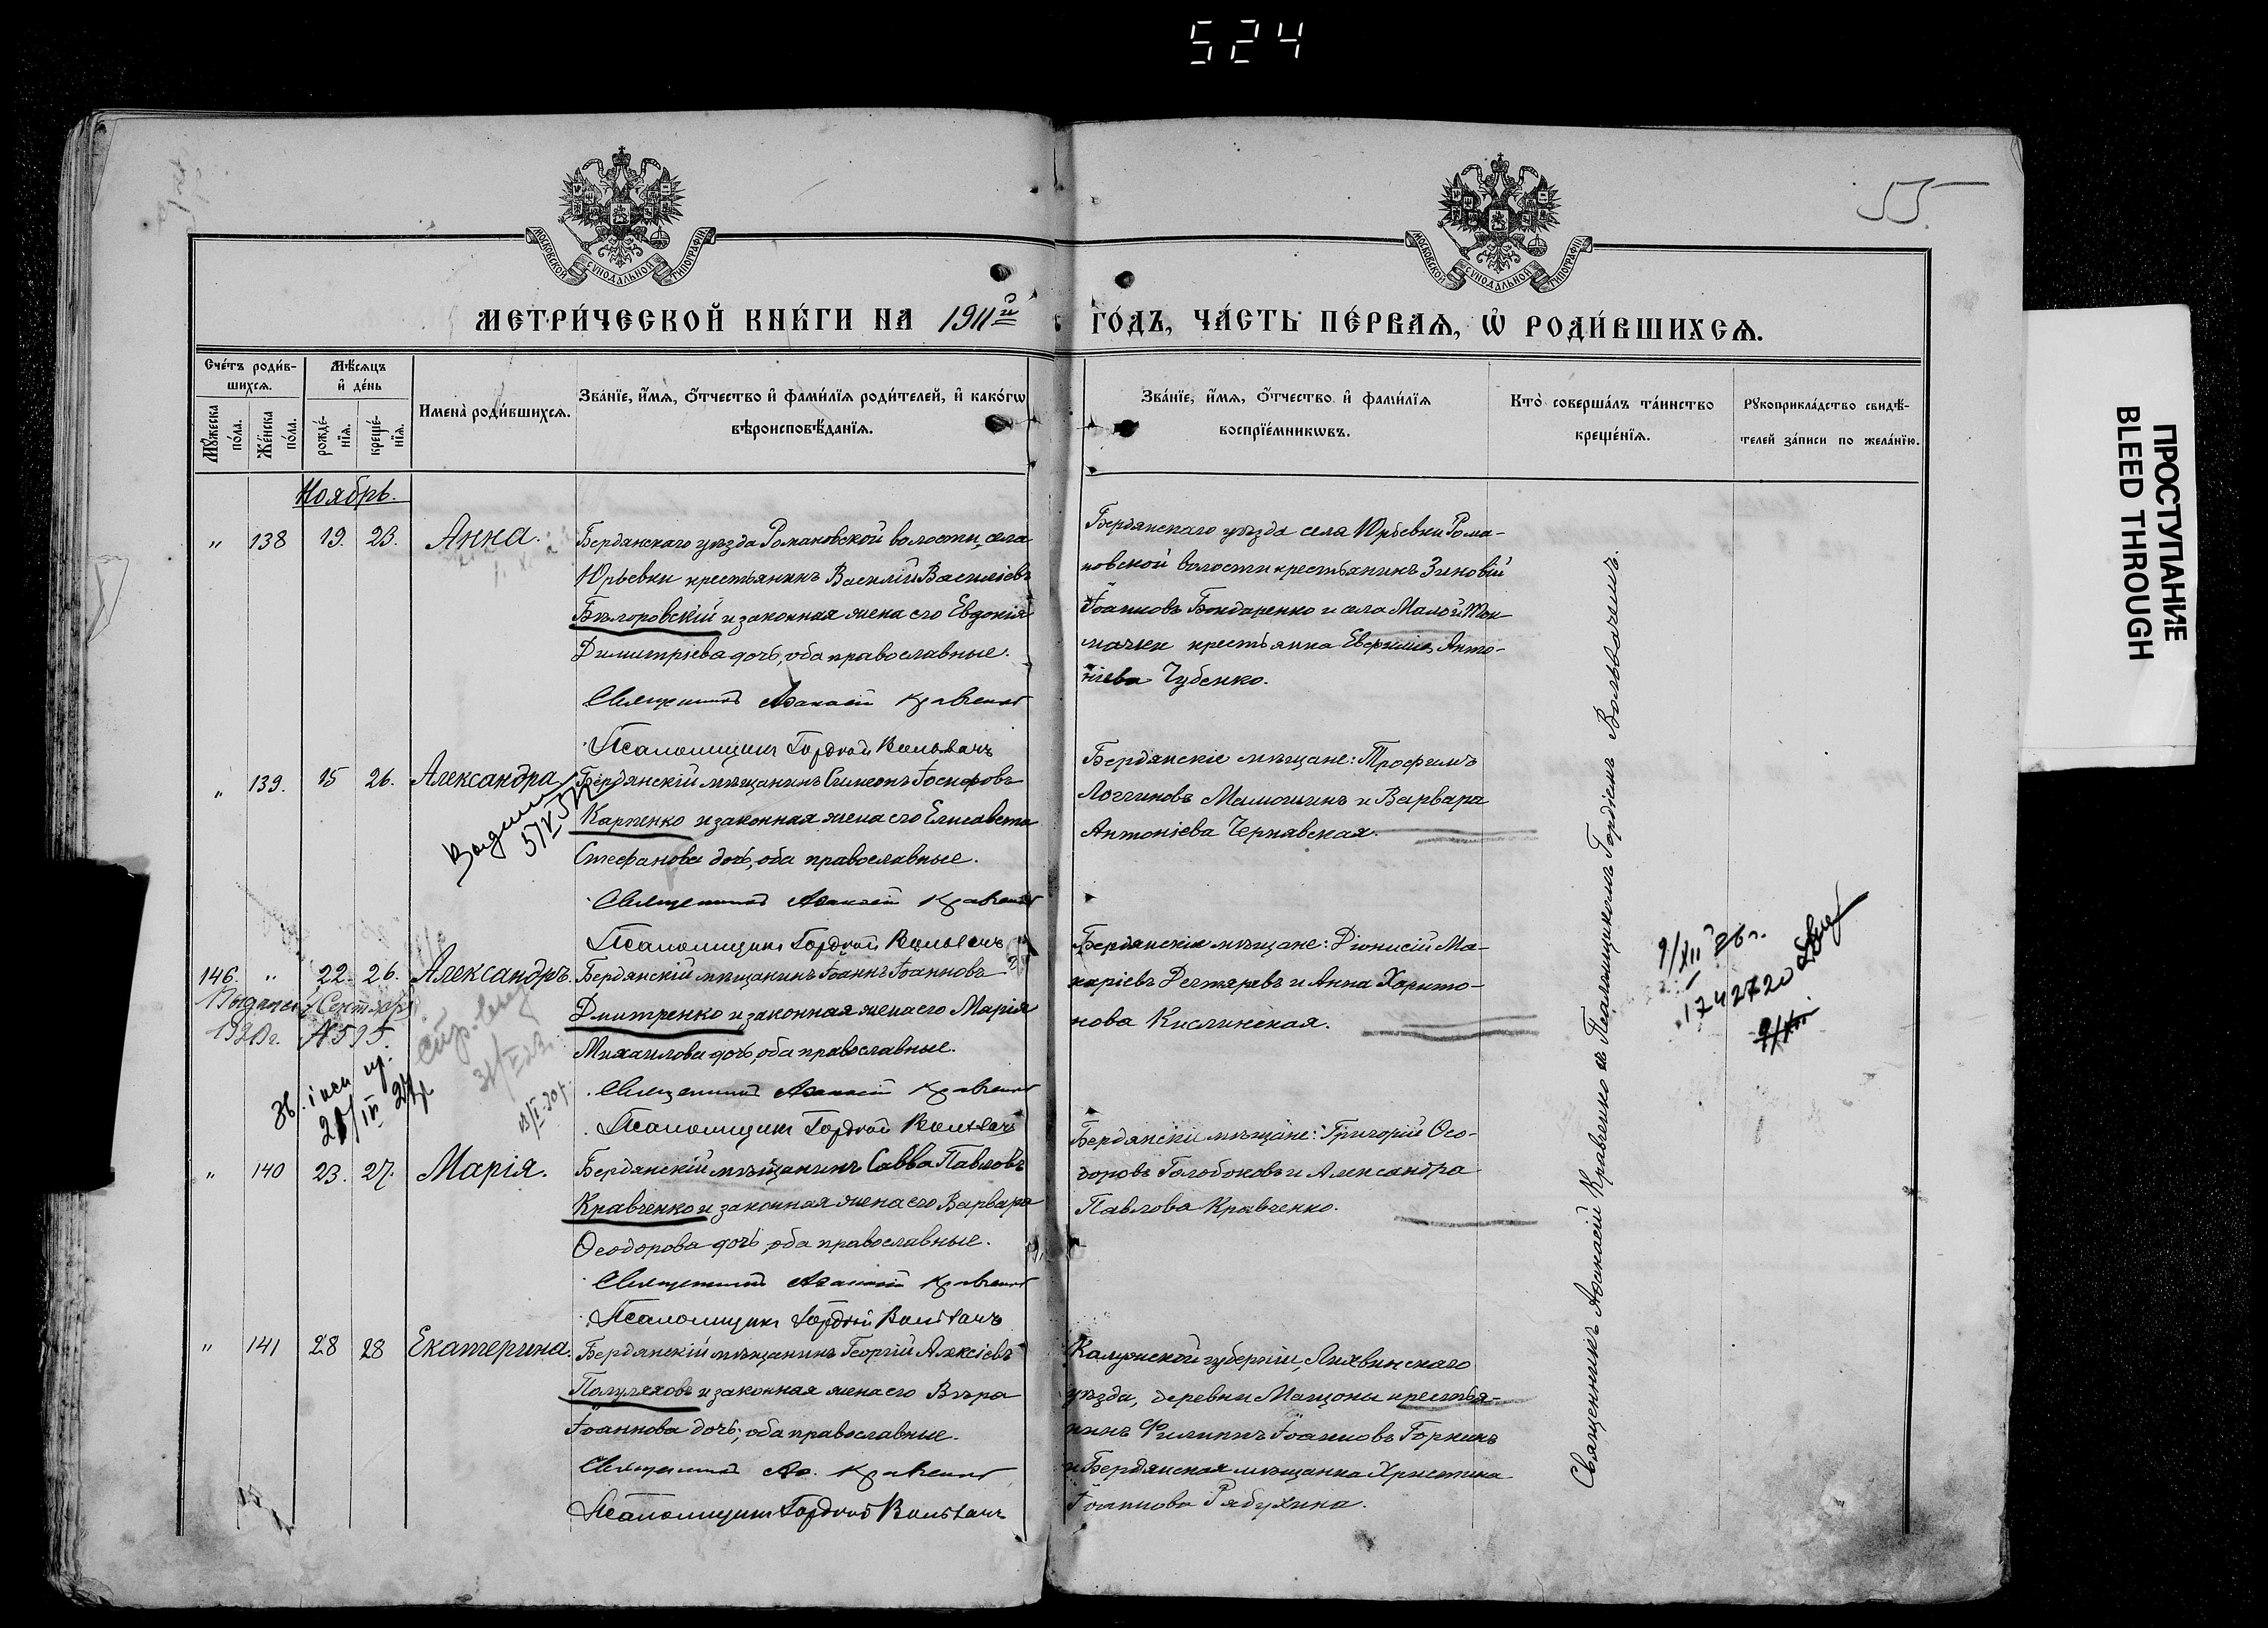 524
55
МОСКОВСКОЙ СУНОДАЛЬНОЙ ТИПОГРАФІИ
МОСКОВСКОЙ СУНОДАЛЬНОЙ ТИПОГРАФІИ
МЕТРИ́ЧЕСКОЙ КНИ́ГИ НА 1911й
ГО́ДЪ, ЧА́СТЬ ПЕ́РВАѦ, Ѡ҆ РОДИ́ВШИХСѦ.
Сче́тъ роди́в-
шихсѧ.
Мꙋ́жеска по́ла.
Же́нска по́ла.
Мѣ́сѧцъ
и҆ де́нь
рожде́-
нїѧ.
креще́-
нїѧ.
Имена̀ роди́вшихсѧ.
Зва́нїе, и҆́мѧ, ѻ҆́тчество и҆ фами́лїѧ роди́телей, и҆ како́гѡ
вѣроисповѣ́данїѧ.
Зва́нїе, и҆́мѧ, ѻ҆́тчество и҆ фами́лїѧ
воспрїе́мникѡвъ.
Кто̀ соверша́лъ та́инство
креще́нїѧ.
Рꙋкоприкла́дство свидѣ́-
телей за́писи по жела́нїю.
Ноябрь.
" 138 19. 23. Анна.
Бердянскаго уѣзда Романовской волости, села
Юрьевки крестьянинъ Василій Василіевъ
Бѣлоровскій и законная жена его Евдокія
Димитріева дочь, оба православные.
Священникъ Аѳанасій Кравченко
Псаломщикъ Гордій Вольвачъ
Бердянскаго уѣзда села Юрьевки Рома-
новской волости крестьянинъ Зиновій
Іоанновъ Бондаренко и села Малой Ток-
мачки крестьянка Евфимія Анто-
ніева Чубенко.
" 139. 15 26. Александра
Бердянскій мѣщанинъ Симеонъ Іосифовъ
Карпенко и законная жена его Елисавета
Стефанова дочь, оба православные.
Священникъ Аѳанасій Кравченко
Псаломщикъ Гордій Вольвачъ
Бердянскіе мѣщане: Трофимъ
Логгиновъ Мамошинъ и Варвара
Антоніева Чернявская.
146. " 22. 26. Александръ.
Бердянскій мѣщанинъ Іоаннъ Іоанновъ
Дмитренко и законная жена его Марія
Михаилова дочь, оба православные.
Священникъ Аѳанасій Кравченко
Псаломщикъ Гордій Вольвачъ
№ 595.
Бердянскіе мѣщане: Діонисій Ма-
каріевъ Дегтяревъ и Анна Харито-
нова Кислинская.
9/XII 26 г.
1742720
" 140 23. 27. Марія.
Бердянскій мѣщанинъ Савва Павловъ
Кравченко и законная жена его Варвара
Ѳеодорова дочь, оба православные.
Священникъ Аѳанасій Кравченко
Псаломщикъ Гордій Вольвачъ
Бердянскіе мѣщане: Григорій Ѳео-
доровъ Голобоковъ и Александра
Павлова Кравченко.
" 141 28 28 Екатерина.
Бердянскій мѣщанинъ Георгій Алексіевъ
Полуляховъ и законная жена его Вѣра
Іоаннова дочь, оба православные.
Священникъ Аѳ. Кравченко
Псаломщикъ Гордій Вольвачъ
Калужской губерніи, Лихвинскаго
уѣзда, деревни Мащоны крестья-
нинъ Филиппъ Іоанновъ Горкинъ
и Бердянская мѣщанка Христина
Іоаннова Рябухина.
Священникъ Аѳанасій Кравченко съ Псаломщикомъ Гордіемъ Вольвачемъ.
ПРОСТУПАНИЕ
BLEED THROUGH